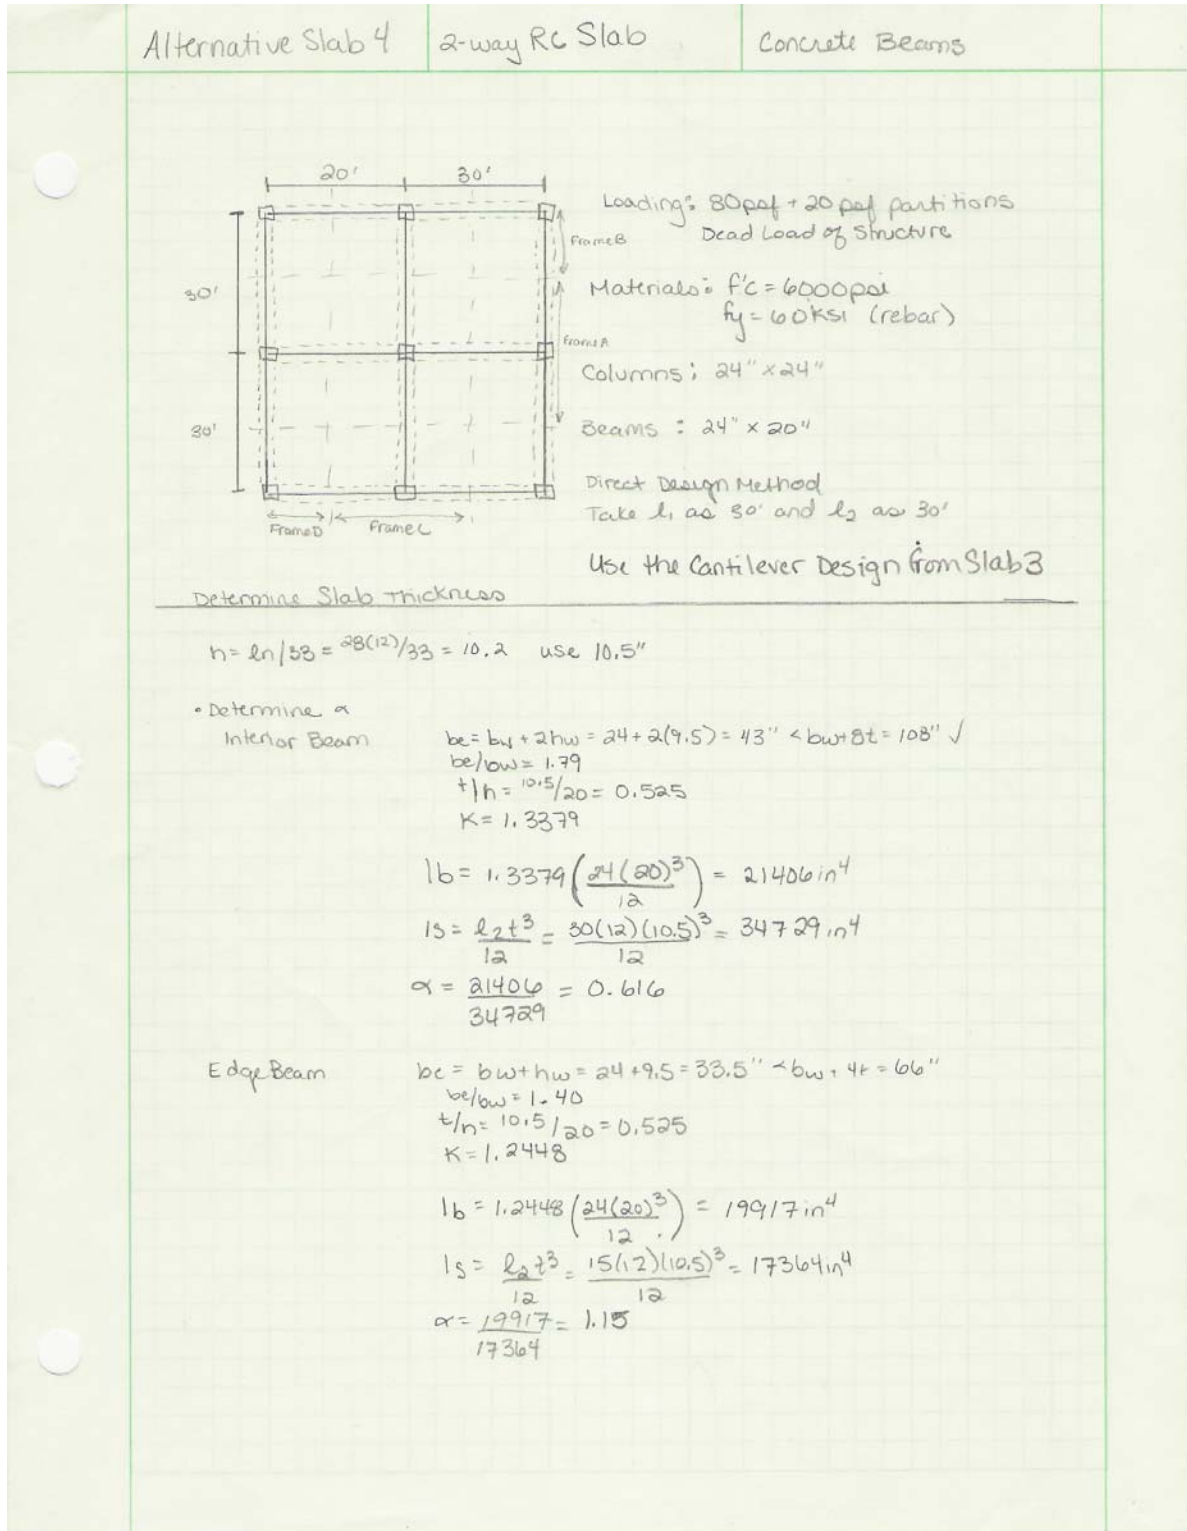 Alternative Slab 4
2-way RC Slab
Concrete Beams
20'
30'
Loading: 80psf + 20 psf partitions
Dead Load of Structure
Frame B
30'
Materials: f'c = 6000psi
fy = 60ksi (rebar)
Frame A
Columns: 24" x 24"
30'
Beams : 24" x 20"
Direct Design Method
Take l1 as 30' and l2 as 30'
Frame D
Frame C
Use the Cantilever Design from Slab 3
Determine Slab Thickness
h = ln/33 = 28(12)/33 = 10.2 use 10.5"
• Determine α
Interior Beam
be = bw + 2hw = 24 + 2(9.5) = 43" < bw+8t = 108" √
be/bw = 1.79
t/h = 10.5/20 = 0.525
K = 1.3379
Ib = 1.3379 (24(20)³/12) = 21406 in⁴
Is = l2t³/12 = 30(12)(10.5)³/12 = 34729 in⁴
α = 21406/34729 = 0.616
Edge Beam
be = bw + hw = 24 + 9.5 = 33.5" < bw + 4t = 66"
be/bw = 1.40
t/h = 10.5/20 = 0.525
K = 1.2448
Ib = 1.2448 (24(20)³/12) = 19917 in⁴
Is = l2t³/12 = 15(12)(10.5)³/12 = 17364 in⁴
α = 19917/17364 = 1.15